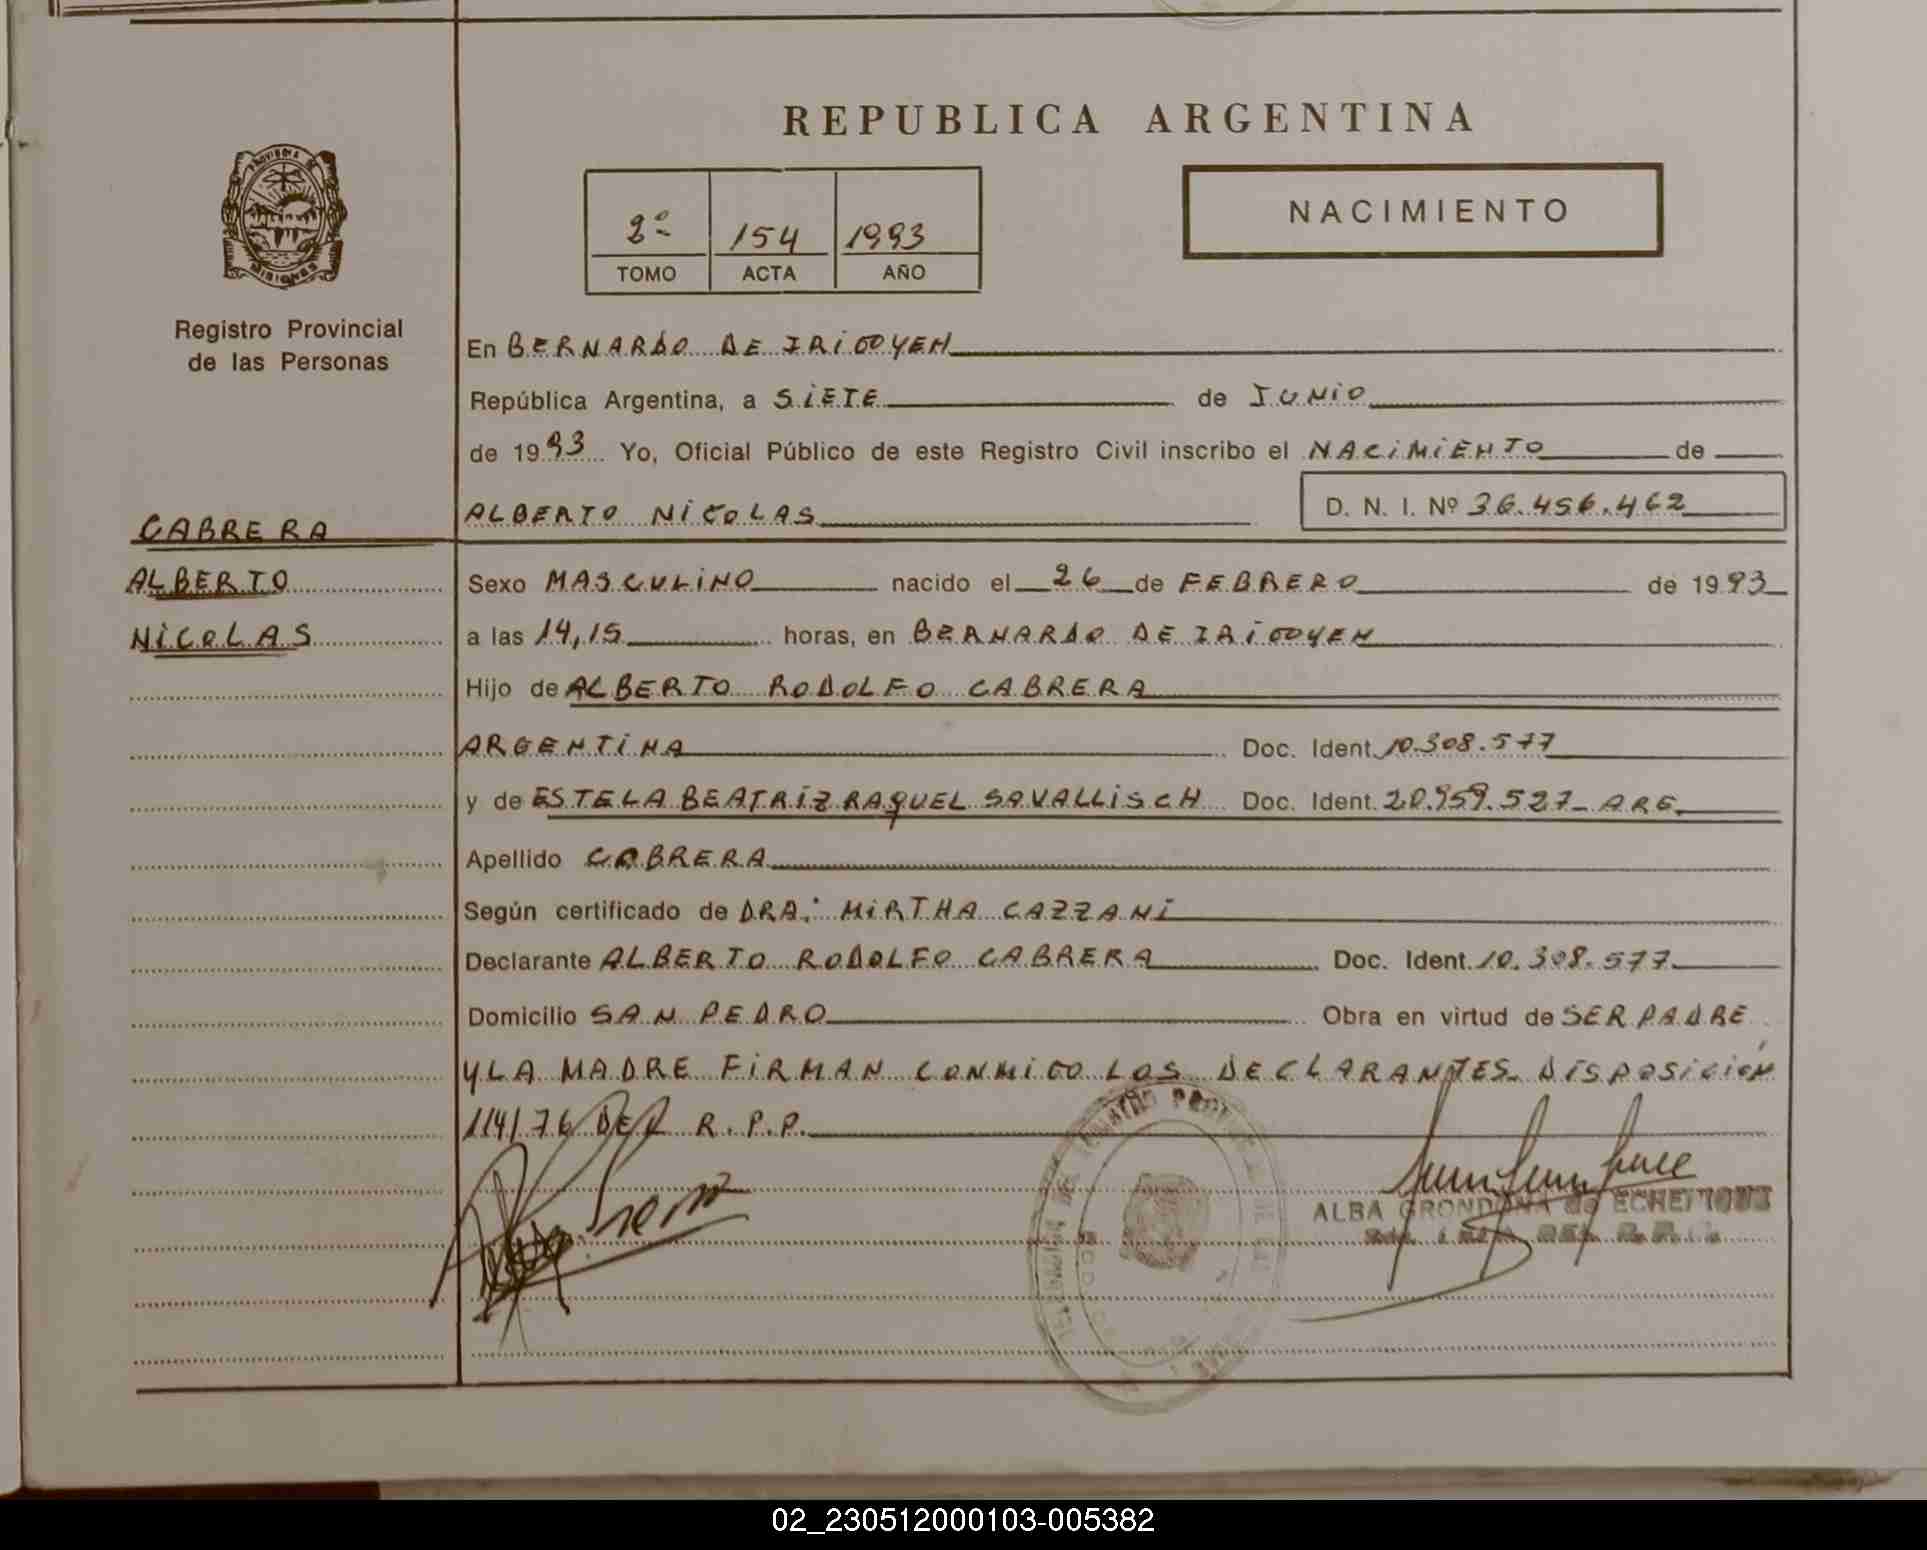 REPUBLICA ARGENTINA
PROVINCIA DE
MISIONES
Registro Provincial
de las Personas
2º 154 1993
TOMO ACTA AÑO
NACIMIENTO
En BERNARDO DE IRIGOYEN
República Argentina, a SIETE de JUNIO
de 1993 Yo, Oficial Público de este Registro Civil inscribo el NACIMIENTO de
ALBERTO NICOLAS D. N. I. Nº 36.456.462
CABRERA
ALBERTO
NICOLAS
Sexo MASCULINO nacido el 26 de FEBRERO de 1993
a las 14,15 horas, en BERNARDO DE IRIGOYEN
Hijo de ALBERTO RODOLFO CABRERA
ARGENTINA Doc. Ident. 10.308.577
y de ESTELA BEATRIZ RAQUEL SAVALLISCH Doc. Ident. 20.959.527- ARG.
Apellido CABRERA
Según certificado de DRA: MIRTHA CAZZANI
Declarante ALBERTO RODOLFO CABRERA Doc. Ident. 10.308.577
Domicilio SAN PEDRO Obra en virtud de SER PADRE
Y LA MADRE FIRMAN CONMIGO LOS DECLARANTES. DISPOSICIÓN
114/76 DEL R.P.P.
ALBA GRONDONA de
02_230512000103-005382